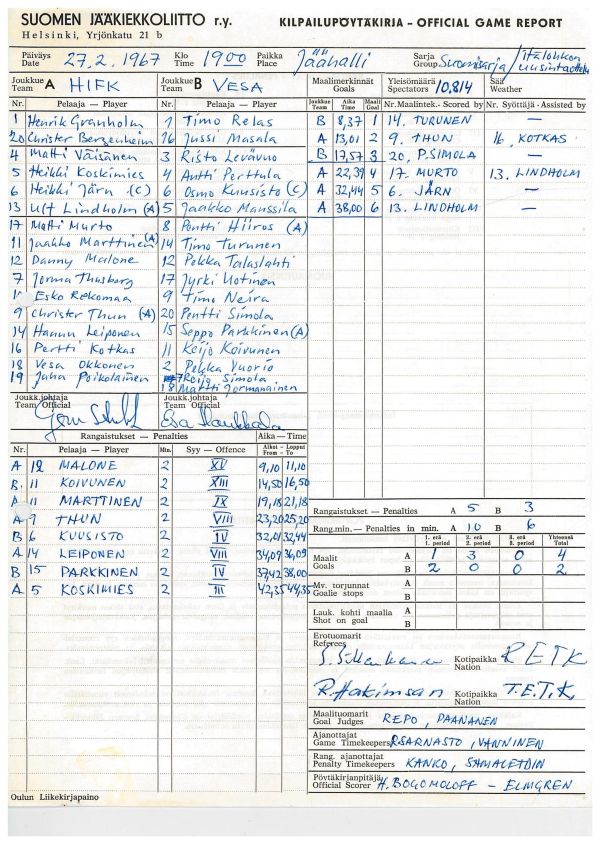 SUOMEN JÄÄKIEKKOLIITTO r.y.
Helsinki, Yrjönkatu 21 b
KILPAILUPÖYTÄKIRJA – OFFICIAL GAME REPORT
Päiväys Date 27.2.1967 Klo Time 1900 Paikka Place Jäähalli Sarja Group Suomisarja / Itälohkon uusintaottelu
Joukkue Team A HIFK Joukkue Team B VESA Maalimerkinnät Goals Yleisömäärä Spectators 10,814 Sää Weather
Nr. Pelaaja — Player Nr. Pelaaja — Player Joukkue Team Aika Time Maali Goal Nr. Maalintek.- Scored by Nr. Syöttäjä - Assisted by
1 Henrik Granholm 1 Timo Relas B 8,37 1 14. TURUNEN —
20 Christer Bergenheim 16 Jussi Masala A 13,01 2 9. THUN 16, KOTKAS
4 Matti Väisänen 3 Risto Levävuo B 17,57 3 20, P. SIMOLA —
5 Heikki Koskimies 4 Antti Perttula A 22,39 4 17. MURTO 13. LINDHOLM
6 Heikki Järn (C) 6 Osmo Kuusisto (C) A 32,44 5 6. JÄRN —
13 Ulf Lindholm (A) 5 Jaakko Manssila A 38,00 6 13. LINDHOLM —
17 Matti Murto 8 Pentti Hiiros (A)
11 Jaakko Marttinen (A) 14 Timo Turunen
12 Danny Malone 12 Pekka Talaslahti
7 Jorma Thusberg 17 Jyrki Uotinen
Esko Rekomaa 9 Timo Neira
9 Christer Thun (A) 20 Pentti Simola
14 Hannu Leiponen 15 Seppo Parkkinen (A)
16 Pertti Kotkas 11 Keijo Koivunen
18 Vesa Okkonen 2 Pekka Vuorio
19 Juha Poikolainen 7 Reijo Simola
18 Martti Jormanainen
Joukk.johtaja Team Official Joukk.johtaja Team Official
Rangaistukset — Penalties Aika — Time
Nr. Pelaaja — Player Min. Syy — Offence Alkoi From Loppui To
A 12 MALONE 2 XV 9,10 11,10
B. 11 KOIVUNEN 2 XIII 14,50 16,50
A 11 MARTTINEN 2 IX 19,18 21,18
A 9 THUN 2 VIII 23,20 25,20
B 6 KUUSISTO 2 IV 32,01 32,44
A 14 LEIPONEN 2 VIII 34,09 36,09
B 15 PARKKINEN 2 IV 37,42 38,00
A 5 KOSKIMIES 2 III 42,35 44,35
Rangaistukset — Penalties A 5 B 3
Rang.min.— Penalties in min. A 10 B 6
1. erä 1. period 2. erä 2. period 3. erä 3. period Yhteensä Total
Maalit Goals A 1 3 0 4
B 2 0 0 2
Mv. torjunnat Goalie stops A
B
Lauk. kohti maalia Shot on goal A
B
Erotuomarit Referees
Kotipaikka Nation RETK
R. Hakimsan Kotipaikka Nation T.E.T.K.
Maalituomarit Goal Judges REPO, PAANANEN
Ajanottajat Game Timekeepers R. SARNASTO, VANNINEN
Rang. ajanottajat Penalty Timekeepers KANKO, SAMALETDIN
Pöytäkirjanpitäjä Official Scorer H. BOGOMOLOFF – ELMGREN
Oulun Liikekirjapaino